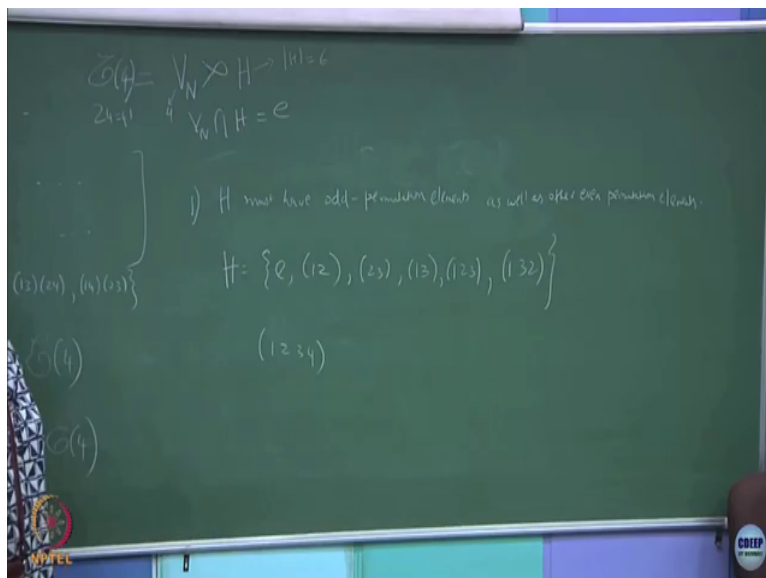 𝔖(4) = V_N ⋊ H → |H| = 6
24=4! 4 V_N ∩ H = e
1) H must have odd-permutation elements as well as other even permutation elements.
H = {e, (12), (23), (13), (123), (132)}
(13)(24), (14)(23)}
(1234)
𝔖(4)
𝔖(4)
NPTEL
CDEEP
IIT BOMBAY